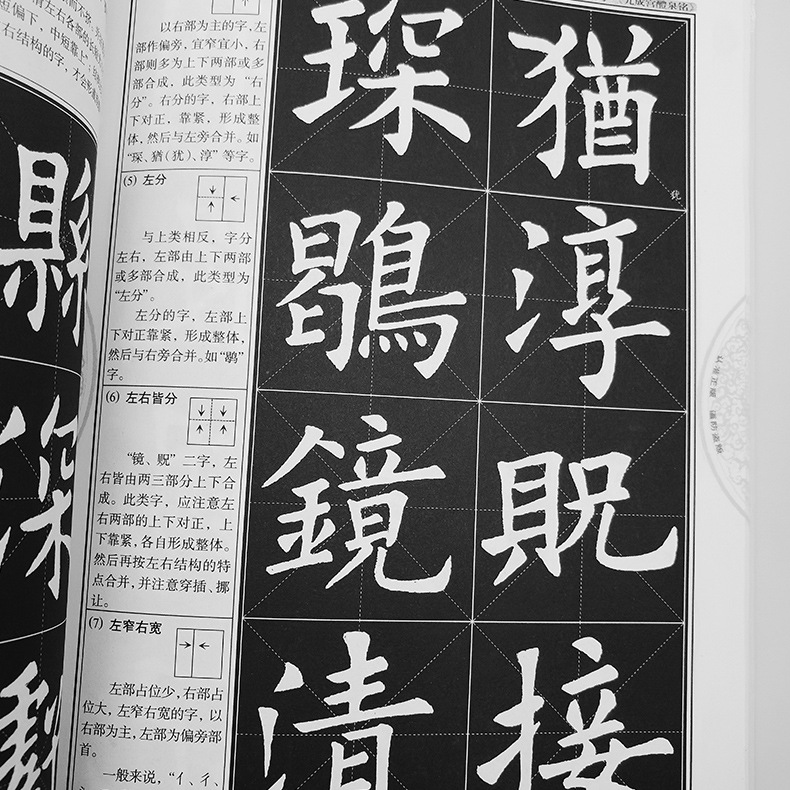 九成宫醴泉铭
以右部为主的字，左
部作偏旁，宜窄宜小，右
部则多为上下两部或多
部合成，此类型为“右
分”。右分的字，右部上
下对正，靠紧，形成整
体，然后与左旁合并。如
“琛、猶（犹）、淳”等字。
(5) 左分
与上类相反，字分
左右，左部由上下两部
或多部合成，此类型为
“左分”。
左分的字，左部上
下对正靠紧，形成整体，
然后与右旁合并。如“鹖”
字。
(6) 左右皆分
“镜、贶”二字，左
右皆由两三部分上下合
成。此类字，应注意左
右两部的上下对正，上
下靠紧，各自形成整体。
然后再按左右结构的特
点合并，并注意穿插、挪
让。
(7) 左窄右宽
左部占位少，右部占
位大，左窄右宽的字，以
右部为主，左部为偏旁部
首。
一般来说，“亻、彳、
琛 猶
鶡 淳
鏡 貺
清 接
縣
深